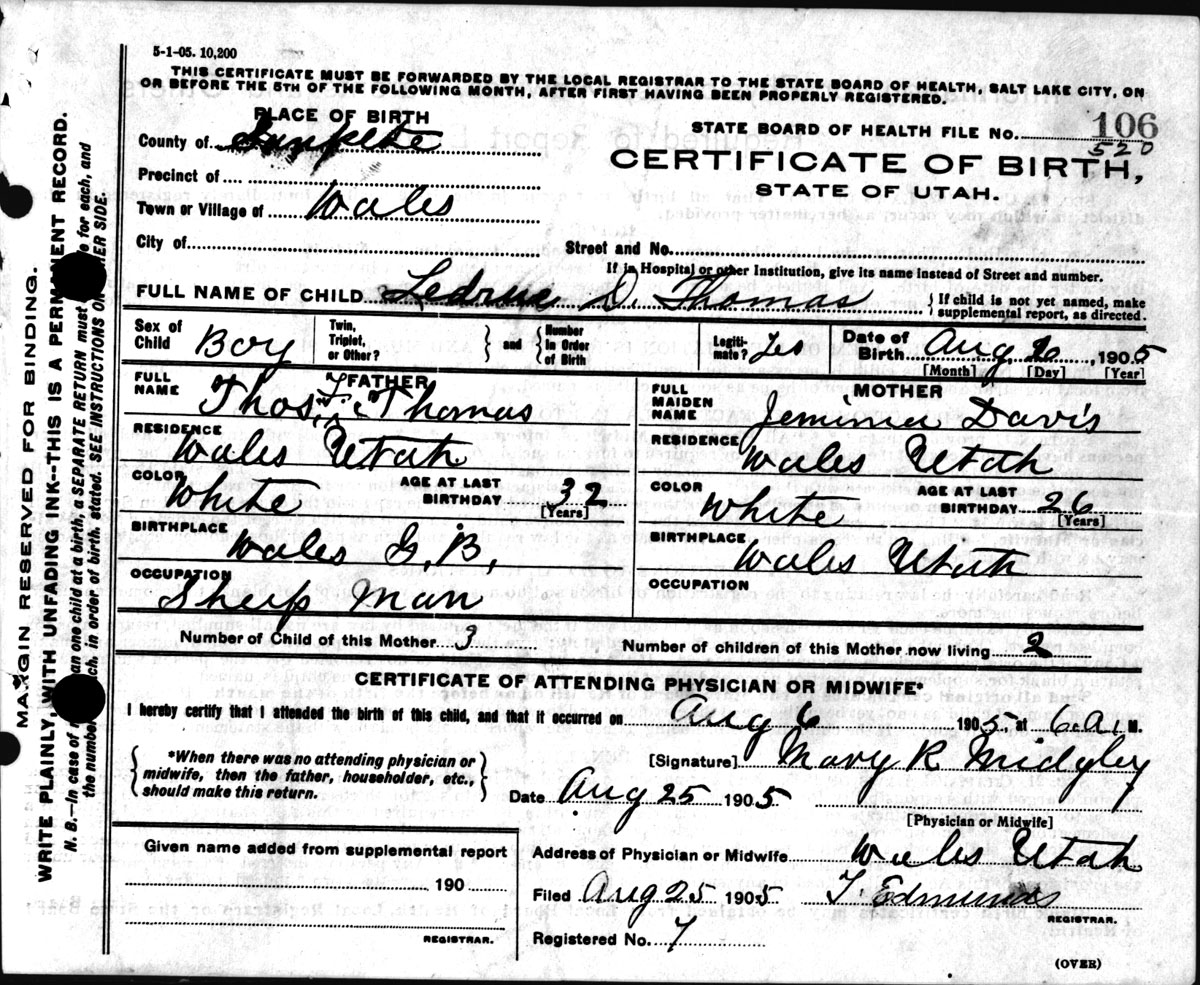 5-1-05. 10,200
THIS CERTIFICATE MUST BE FORWARDED BY THE LOCAL REGISTRAR TO THE STATE BOARD OF HEALTH, SALT LAKE CITY, ON
OR BEFORE THE 5TH OF THE FOLLOWING MONTH, AFTER FIRST HAVING BEEN PROPERLY REGISTERED.
PLACE OF BIRTH
STATE BOARD OF HEALTH FILE NO. 106
520
County of Sanpete
CERTIFICATE OF BIRTH,
STATE OF UTAH.
Precinct of
Town or Village of Wales
City of
Street and No.
If in Hospital or other Institution, give its name instead of Street and number.
FULL NAME OF CHILD Ledrue D. Thomas { If child is not yet named, make
supplemental report, as directed.
Sex of Child Boy Twin, Triplet, or Other? } and { Number in Order of Birth Legiti-mate? Yes Date of Birth Aug 6, 1905
[Month] [Day] [Year]
FATHER
FULL NAME Thos. F. Thomas
RESIDENCE Wales Utah
COLOR White AGE AT LAST BIRTHDAY 32
[Years]
BIRTHPLACE Wales G. B.
OCCUPATION Sheep Man
MOTHER
FULL MAIDEN NAME Jemima Davis
RESIDENCE Wales Utah
COLOR White AGE AT LAST BIRTHDAY 26
[Years]
BIRTHPLACE Wales Utah
OCCUPATION
Number of Child of this Mother 3 Number of children of this Mother now living 2
CERTIFICATE OF ATTENDING PHYSICIAN OR MIDWIFE*
I hereby certify that I attended the birth of this child, and that it occurred on Aug 6 1905, at 6 A.M.
{ *When there was no attending physician or
midwife, then the father, householder, etc.,
should make this return. }
[Signature] Mary R Midgley
Date Aug 25 1905
[Physician or Midwife]
Given name added from supplemental report
190
REGISTRAR.
Address of Physician or Midwife Wales Utah
Filed Aug 25 1905 T. Edmunds
REGISTRAR.
Registered No. 7
(OVER)
MARGIN RESERVED FOR BINDING.
WRITE PLAINLY, WITH UNFADING INK--THIS IS A PERMANENT RECORD.
N. B.—In case of an one child at a birth, a SEPARATE RETURN must for each, and
the number ch, in order of birth, stated. SEE INSTRUCTIONS O ER SIDE.